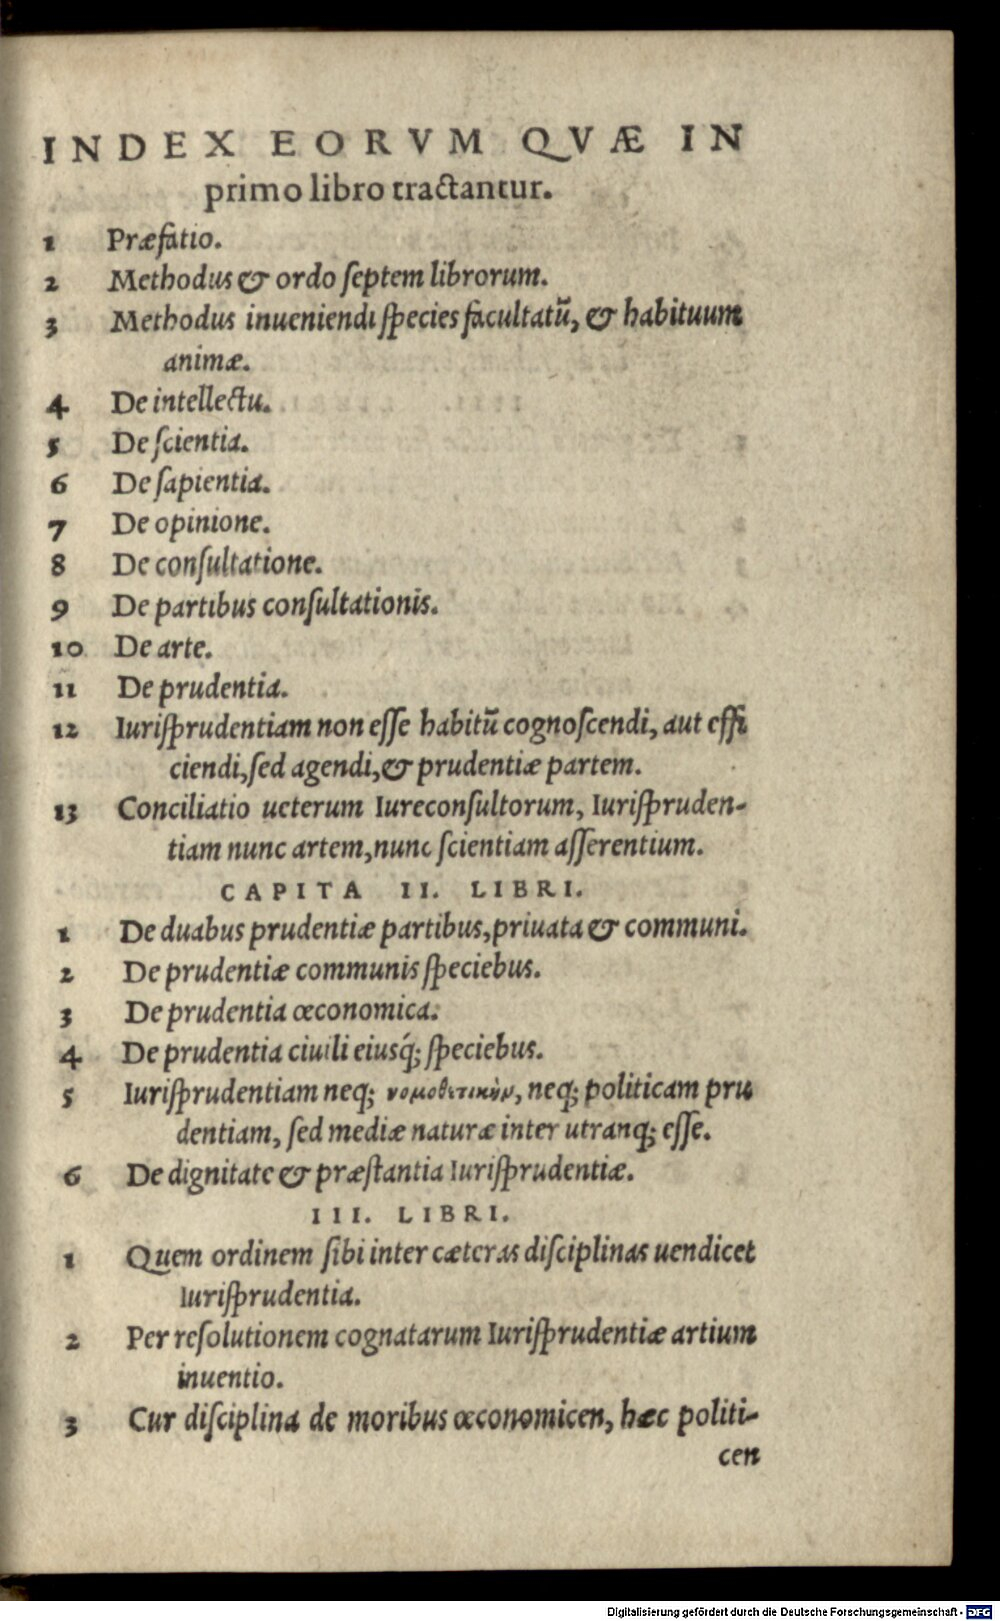 INDEX EORVM QVÆ IN
primo libro tractantur.
1 Præfatio.
2 Methodus & ordo ſeptem librorum.
3 Methodus inueniendi ſpecies facultatū, & habituum
animæ.
4 De intellectu.
5 De ſcientia.
6 De ſapientia.
7 De opinione.
8 De conſultatione.
9 De partibus conſultationis.
10 De arte.
11 De prudentia.
12 Iuriſprudentiam non eſſe habitū cognoſcendi, aut effi
ciendi, ſed agendi, & prudentiæ partem.
13 Conciliatio ueterum Iureconſultorum, Iuriſpruden-
tiam nunc artem, nunc ſcientiam aſſerentium.
CAPITA II. LIBRI.
1 De duabus prudentiæ partibus, priuata & communi.
2 De prudentiæ communis ſpeciebus.
3 De prudentia œconomica.
4 De prudentia ciuili eiusq́; ſpeciebus.
5 Iuriſprudentiam neq; νομοθετικὴν, neq; politicam pru
dentiam, ſed mediæ naturæ inter utranq; eſſe.
6 De dignitate & præſtantia Iuriſprudentiæ.
III. LIBRI.
1 Quem ordinem ſibi inter cæteras diſciplinas uendicet
Iuriſprudentia.
2 Per reſolutionem cognatarum Iuriſprudentiæ artium
inuentio.
3 Cur diſciplina de moribus œconomicen, hæc politi-
cen
Digitalisierung gefördert durch die Deutsche Forschungsgemeinschaft - DFG